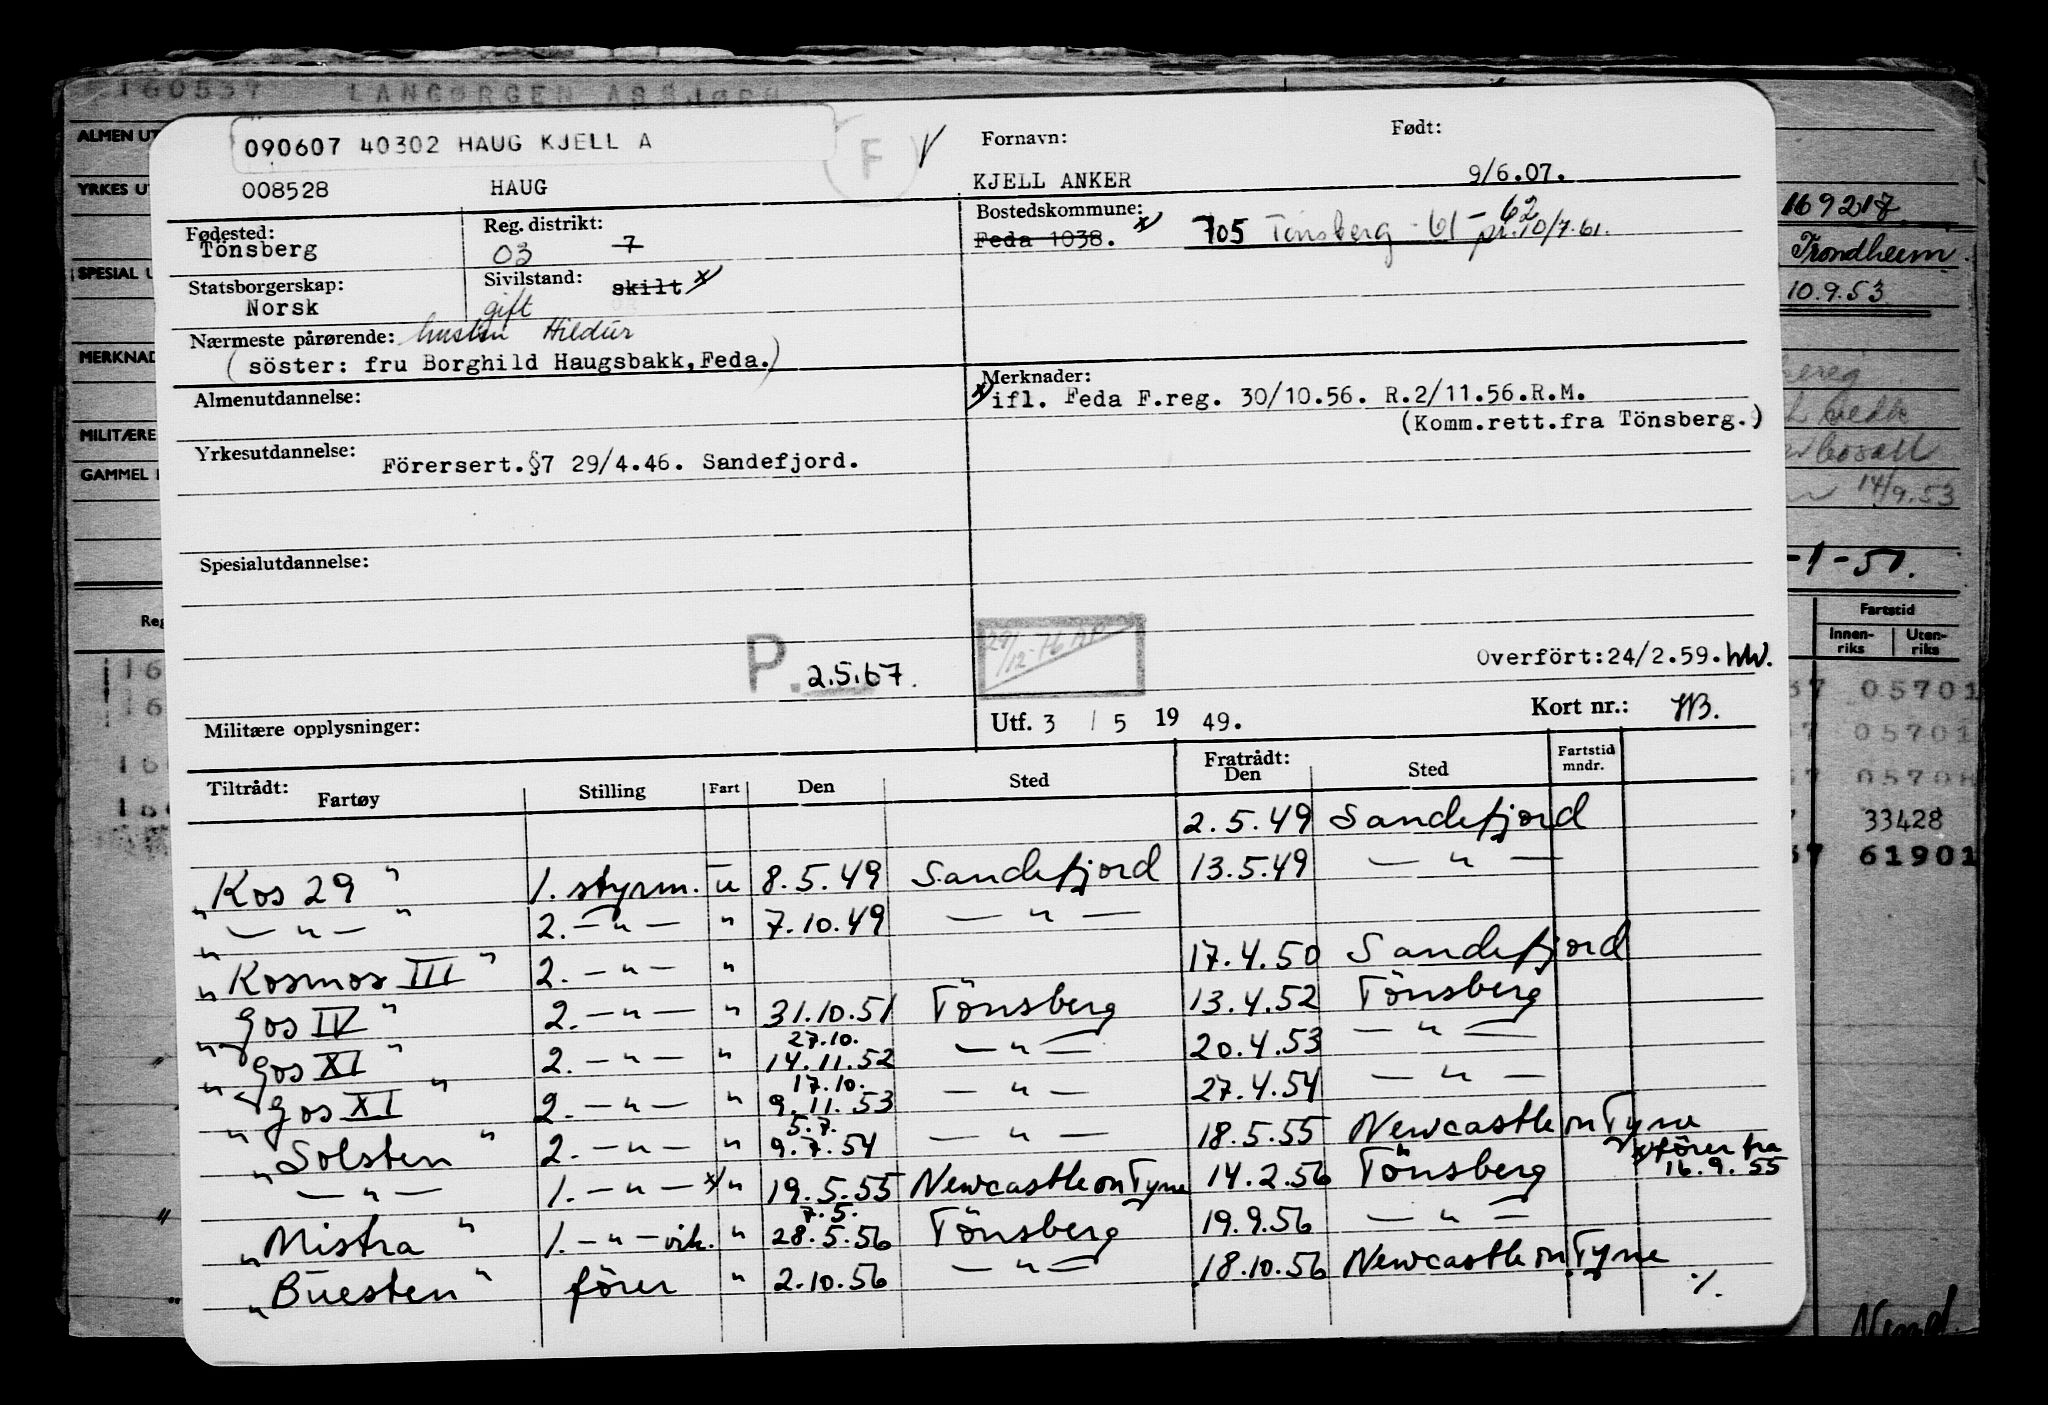 160537 LANGØRGEN ASBJØRN
ALMEN UT
YRKES UT
SPESIAL U
MERKNAD
MILITÆRE
GAMMEL
Reg
169217
Trondheim
10.9.53
14/9.53
-1-51.
Fartstid
Innen-riks Uten-riks
05701
05701
05708
33428
61901
090607 40302 HAUG KJELL A
F
Fornavn:
Født:
008528 HAUG
KJELL ANKER
9/6.07.
Fødested:
Tönsberg
Reg. distrikt:
03 7
Bostedskommune:
Feda 1038. x/ 705 Tönsberg -61-62 pr. 10/7.61.
Statsborgerskap:
Norsk
Sivilstand:
gift skilt x/
Nærmeste pårørende: hustru Hildur
(söster: fru Borghild Haugsbakk,Feda.)
Almenutdannelse:
Merknader:
x/ ifl. Feda F.reg. 30/10.56. R.2/11.56.R.M.
(Komm.rett.fra Tönsberg.)
Yrkesutdannelse: Förersert.§7 29/4.46. Sandefjord.
Spesialutdannelse:
P. 2.5.67.
29/12-76
Overfört:24/2.59.
Militære opplysninger:
Utf. 3 / 5 19 49.
Kort nr.:
Tiltrådt: Fartøy Stilling Fart Den Sted Fratrådt: Den Sted Fartstid mndr.
2.5.49 Sandefjord
"Kos 29" 1. styrm. u 8.5.49 Sandefjord 13.5.49 — " —
" — " — " 2. — " — " 7.10.49 — " —
"Kosmos III" 2. — " — " 17.4.50 Sandefjord
"Gos IV" 2. — " — " 31.10.51 Tönsberg 13.4.52 Tönsberg
27.10.
"Gos XI" 2. — " — " 14.11.52 — " — 20.4.53 — " —
17.10.
"Gos XI" 2. — " — " 9.11.53 — " — 27.4.54 — " —
5.7.
"Solsten" 2. — " — " 9.7.54 — " — 18.5.55 Newcastle on Tyne
— " — 1. — " — x/ " 19.5.55 Newcastle on Tyne 14.2.56 Tönsberg x/ förer fra 16.9.55
7.5.
"Mistra" 1. — " — vik. " 28.5.56 Tönsberg 19.9.56 — " —
"Buesten" förer " 2.10.56 — " — 18.10.56 Newcastle on Tyne ./.